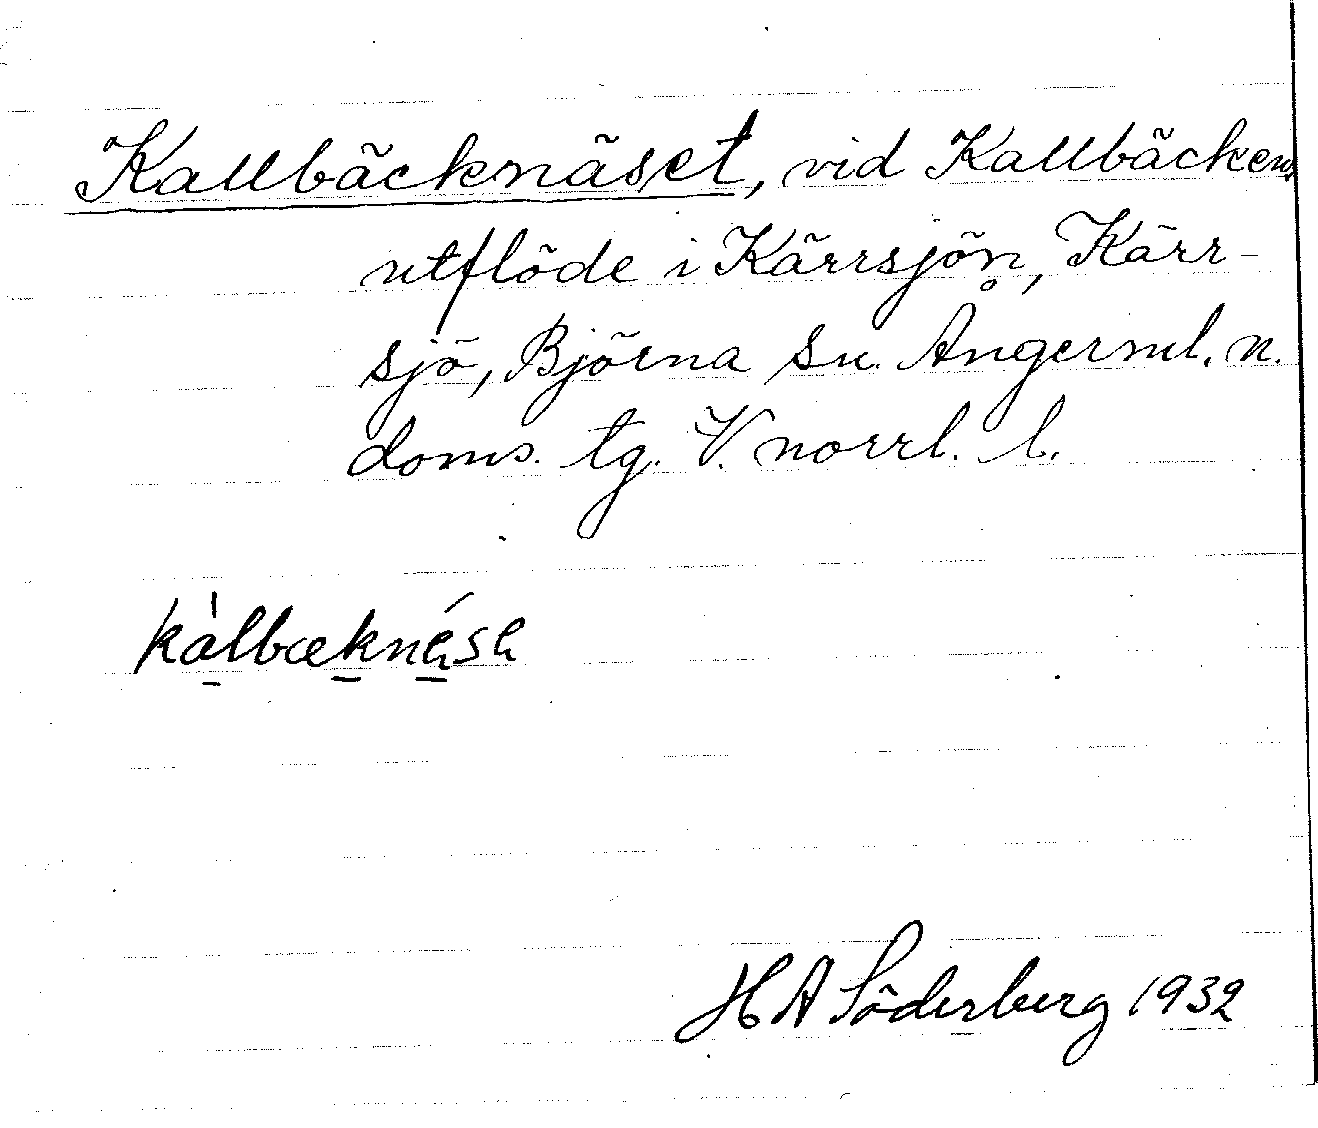 Kallbäcknäset, vid Kallbäckens
utflöde i Kärrsjön, Kärr-
sjö, Björna sn. Ångerml. n.
doms. tg. V. norrl. l.
kàlbæknása
H A Söderberg 1932